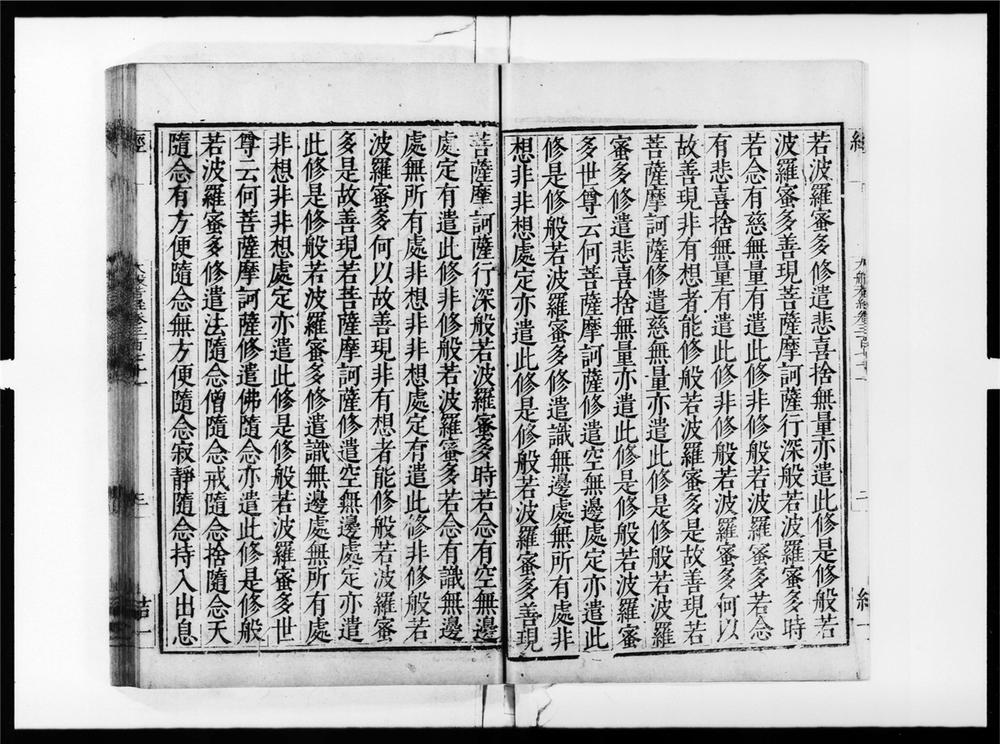 若波羅蜜多修遣悲喜捨無量亦遣此修是修般若
波羅蜜多善現菩薩摩訶薩行深般若波羅蜜多時
若念有慈無量有遣此修非修般若波羅蜜多若念
有悲喜捨無量有遣此修非修般若波羅蜜多何以
故善現非有想者能修般若波羅蜜多是故善現若
菩薩摩訶薩修遣慈無量亦遣此修是修般若波羅
蜜多修遣悲喜捨無量亦遣此修是修般若波羅蜜
多世尊云何菩薩摩訶薩修遣空無邊處定亦遣此
修是修般若波羅蜜多修遣識無邊處無所有處非
想非非想處定亦遣此修是修般若波羅蜜多善現
菩薩摩訶薩行深般若波羅蜜多時若念有空無邊
處定有遣此修非修般若波羅蜜多若念有識無邊
處無所有處非想非非想處定有遣此修非修般若
波羅蜜多何以故善現非有想者能修般若波羅蜜
多是故善現若菩薩摩訶薩修遣空無邊處定亦遣
此修是修般若波羅蜜多修遣識無邊處無所有處
非想非非想處定亦遣此修是修般若波羅蜜多世
尊云何菩薩摩訶薩修遣佛隨念亦遣此修是修般
若波羅蜜多修遣法隨念僧隨念戒隨念捨隨念天
隨念有方便隨念無方便隨念寂靜隨念持入出息